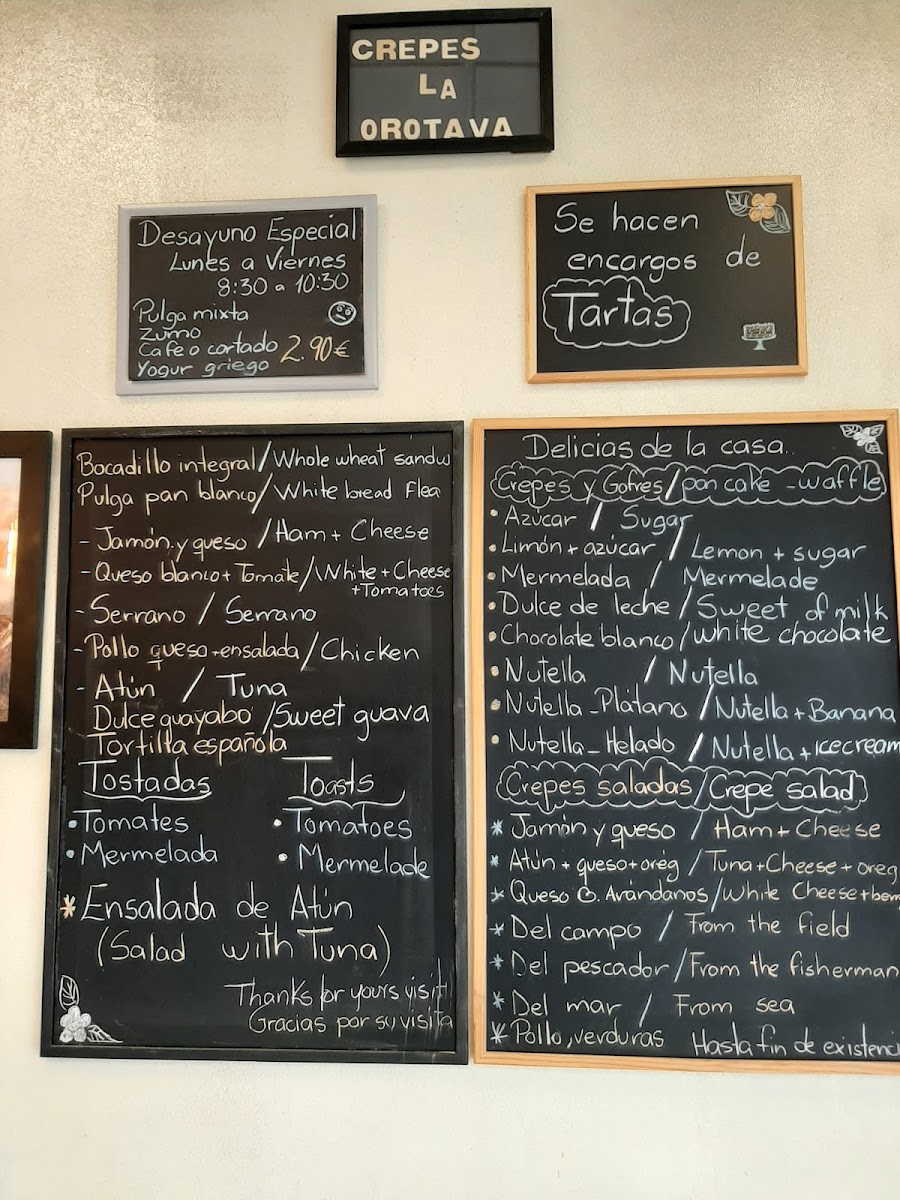 CREPES
LA
OROTAVA
Desayuno Especial
Lunes a Viernes
8:30 a 10:30
Pulga mixta
Zumo
Cafe o cortado 2.90€
Yogur griego
Se hacen
encargos de
Tartas
Bocadillo integral/Whole wheat sandw
Pulga pan blanco/White bread Flea
- Jamón y queso /Ham + Cheese
- Queso blanco + Tomate/White + Cheese
+Tomatoes
- Serrano / Serrano
- Pollo queso+ensalada/Chicken
- Atún / Tuna
Dulce guayabo /Sweet guava
Tortilla española
Tostadas Toasts
• Tomates • Tomatoes
• Mermelada • Mermelade
* Ensalada de Atún
(Salad with Tuna)
Thanks for yours visit
Gracias por su visita
Delicias de la casa..
Crepes y Gofres/pan cake - waffle
• Azúcar / Sugar
• Limón + azúcar / Lemon + sugar
• Mermelada / Mermelade
• Dulce de leche / Sweet of milk
• Chocolate blanco/white chocolate
• Nutella / Nutella
• Nutella - Plátano / Nutella + Banana
• Nutella - Helado / Nutella + icecream
Crepes saladas/Crepe salad
* Jamón y queso / Ham + Cheese
* Atún + queso + oreg / Tuna + Cheese + oreg
* Queso B. Arándanos/White Cheese + berr
* Del campo / From the field
* Del pescador / From the fisherman
* Del mar / From sea
* Pollo, verduras Hasta fin de existenci